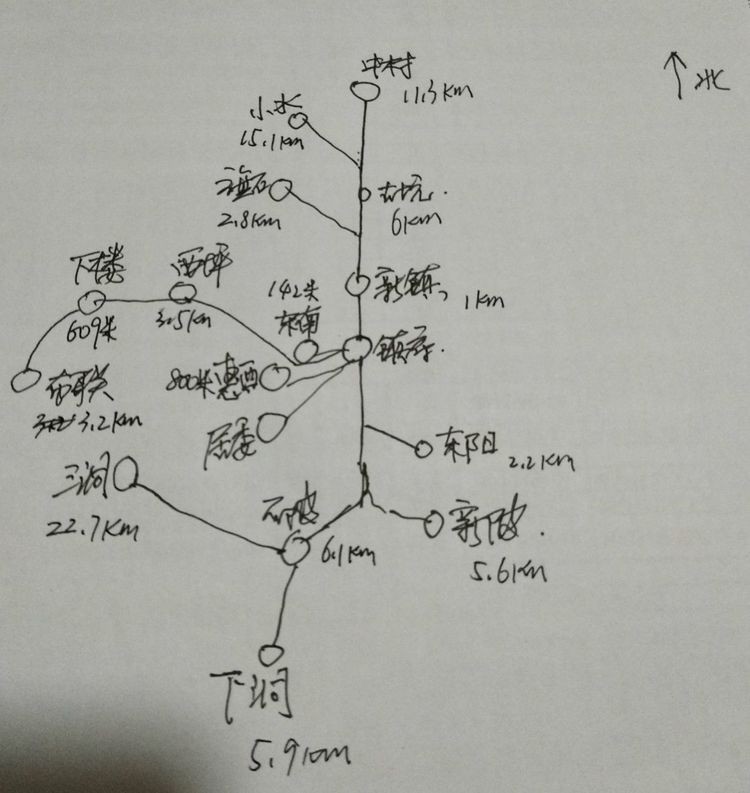 中村
11.3km
北
小水
15.1km
古坑.
6km
2.8km
新镇
1km
下楼
西坪
142米
东南
镇府.
609米
3.5km
800米惠西
布联
3.2km
居委
东阳
2.2km
三洞
22.7km
石陂
6.1km
新陂.
5.6km
下洞
5.9km